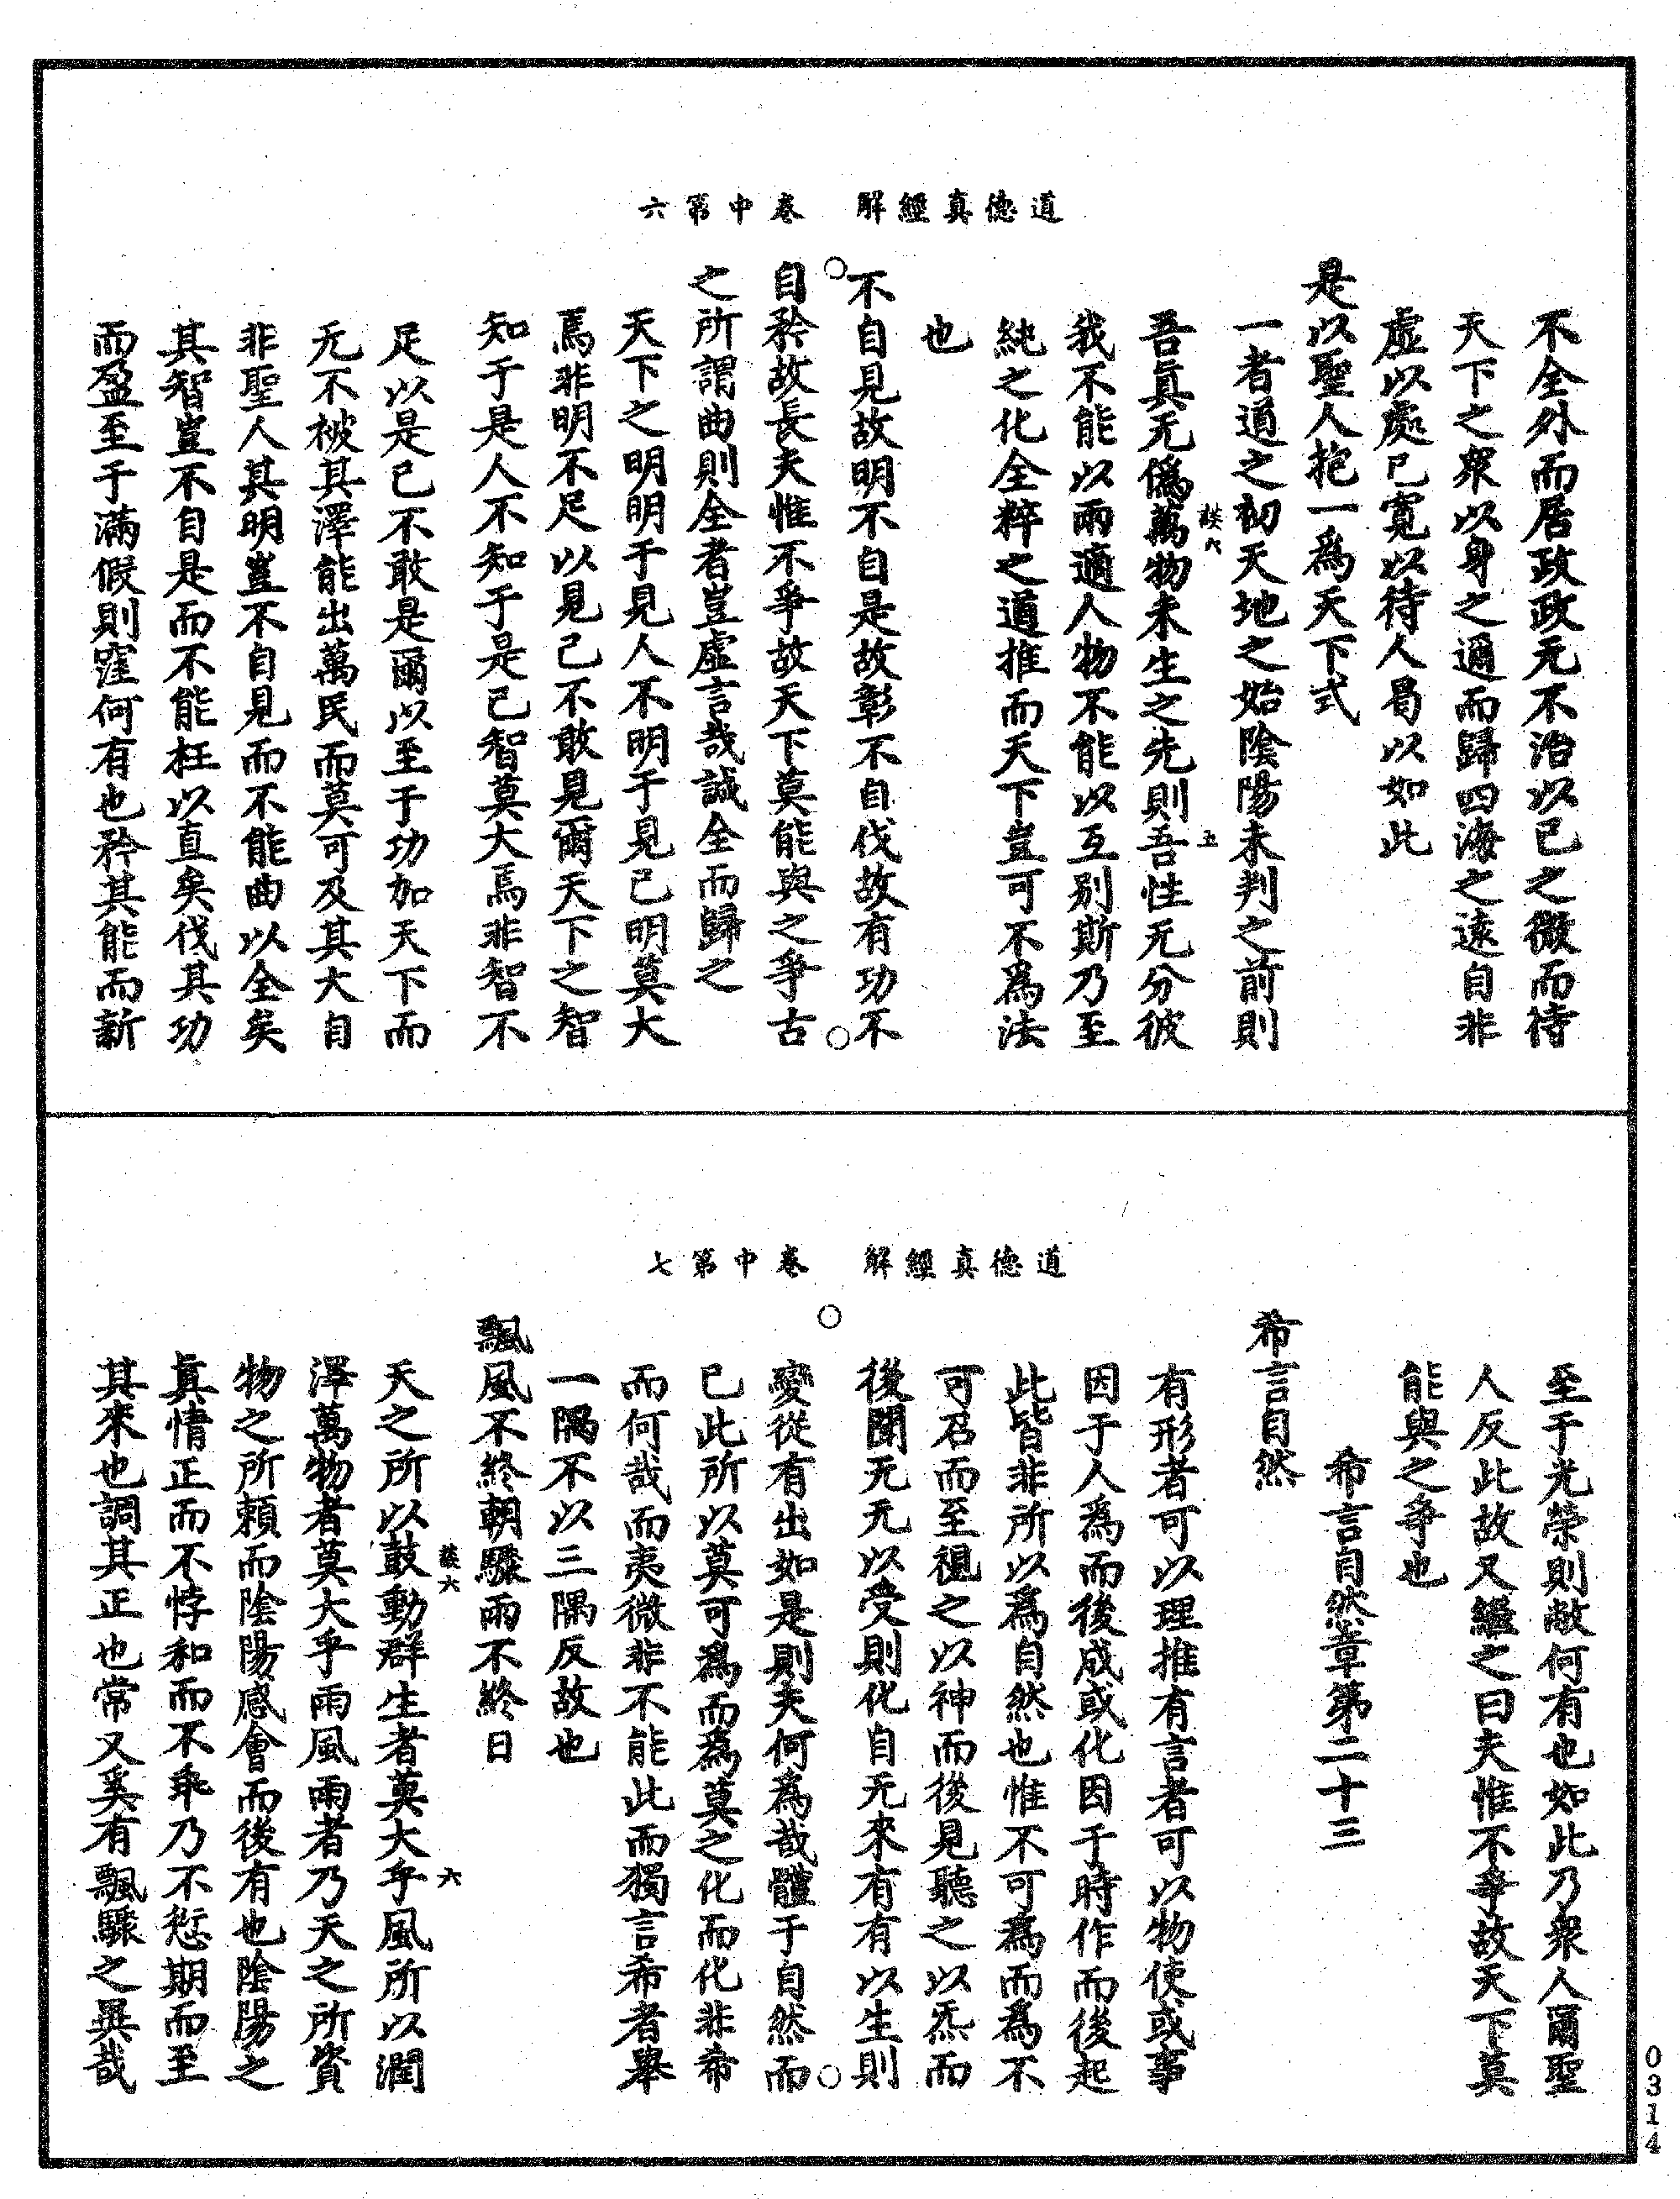 道德真經解　卷中第六
不全外而居政政无不治以已之微而待
天下之眾以身之邇而歸四海之遠自非
虛以處已寬以待人曷以如此
是以聖人抱一爲天下式
一者道之初天地之始陰陽未判之前則
談六
五
吾真无僞萬物未生之先則吾性无分彼
我不能以兩適人物不能以互別斯乃至
純之化全粹之道推而天下豈可不爲法
也
不自見故明不自是故彰不自伐故有功不
自矜故長夫惟不爭故天下莫能與之爭古
之所謂曲則全者豈虛言哉誠全而歸之
天下之明明于見人不明于見己明莫大
焉非明不足以見己不敢見爾天下之智
知于是人不知于是己智莫大焉非智不
足以是己不敢是爾以至于功加天下而
无不被其澤能出萬民而莫可及其大自
非聖人其明豈不自見而不能曲以全矣
其智豈不自是而不能枉以直矣伐其功
而盈至于滿假則窪何有也矜其能而新
道德真經解　卷中第七
至于光榮則敝何有也如此乃衆人爾聖
人反此故又繼之曰夫惟不爭故天下莫
能與之爭也
希言自然章第二十三
希言自然
有形者可以理推有言者可以物使或事
因于人爲而後成或化因于時作而後起
此皆非所以爲自然也惟不可為而爲不
可召而至視之以神而後見聽之以炁而
後聞无无以受則化自无來有有以生則
變從有出如是則夫何為哉體于自然而
已此所以莫可爲而為莫之化而化非希
而何哉而夷微非不能此而獨言希者舉
一隅不以三隅反故也
飄風不終朝驟雨不終日
談六
六
天之所以鼓動群生者莫大乎風所以潤
澤萬物者莫大乎雨風雨者乃天之所資
物之所賴而陰陽感會而後有也陰陽之
真情正而不悖和而不乖乃不愆期而至
其來也調其正也常又奚有飄驟之異哉
0314